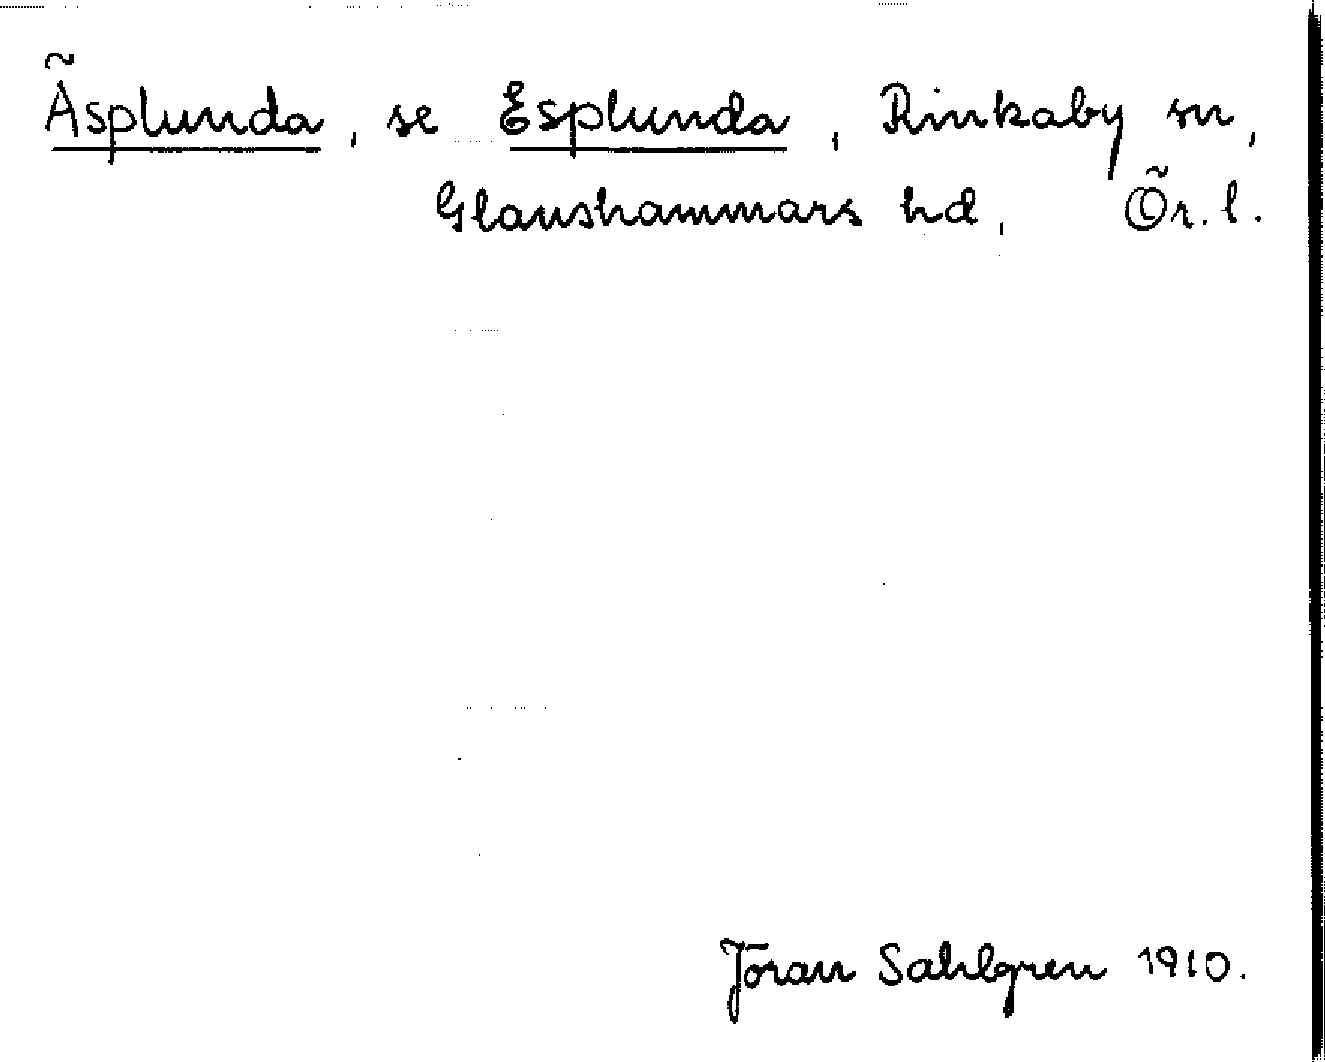 Äsplunda, se Esplunda, Rinkaby sn,
Glanshammars hd, Ör. l.
Jöran Sahlgren 1910.